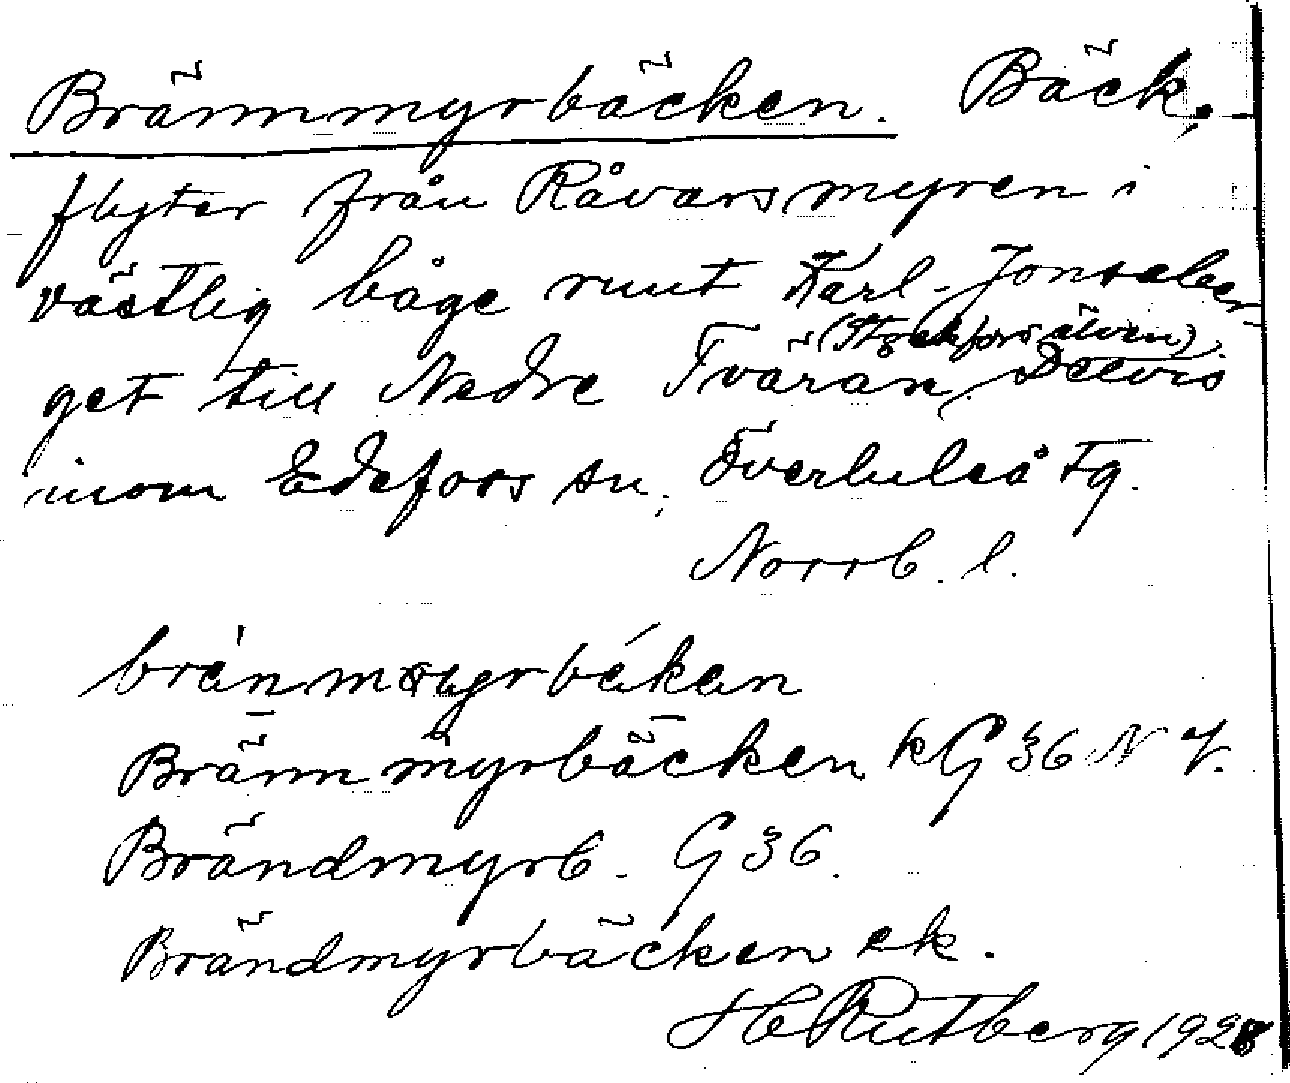 Brännmyrbäcken. Bäck,
flyter från Råvarsmyren i
västlig båge runt Karl-Jonsaber-
(Stockforsälven)
get till Nedre Tvärån, Delvis
inom Edefors sn, Överluleå tg.
Norrb. l.
Brännmyrbäcken kG 36 N
Brändmyrb. G 36.
Brändmyrbäcken ek.
H Rutberg 1928